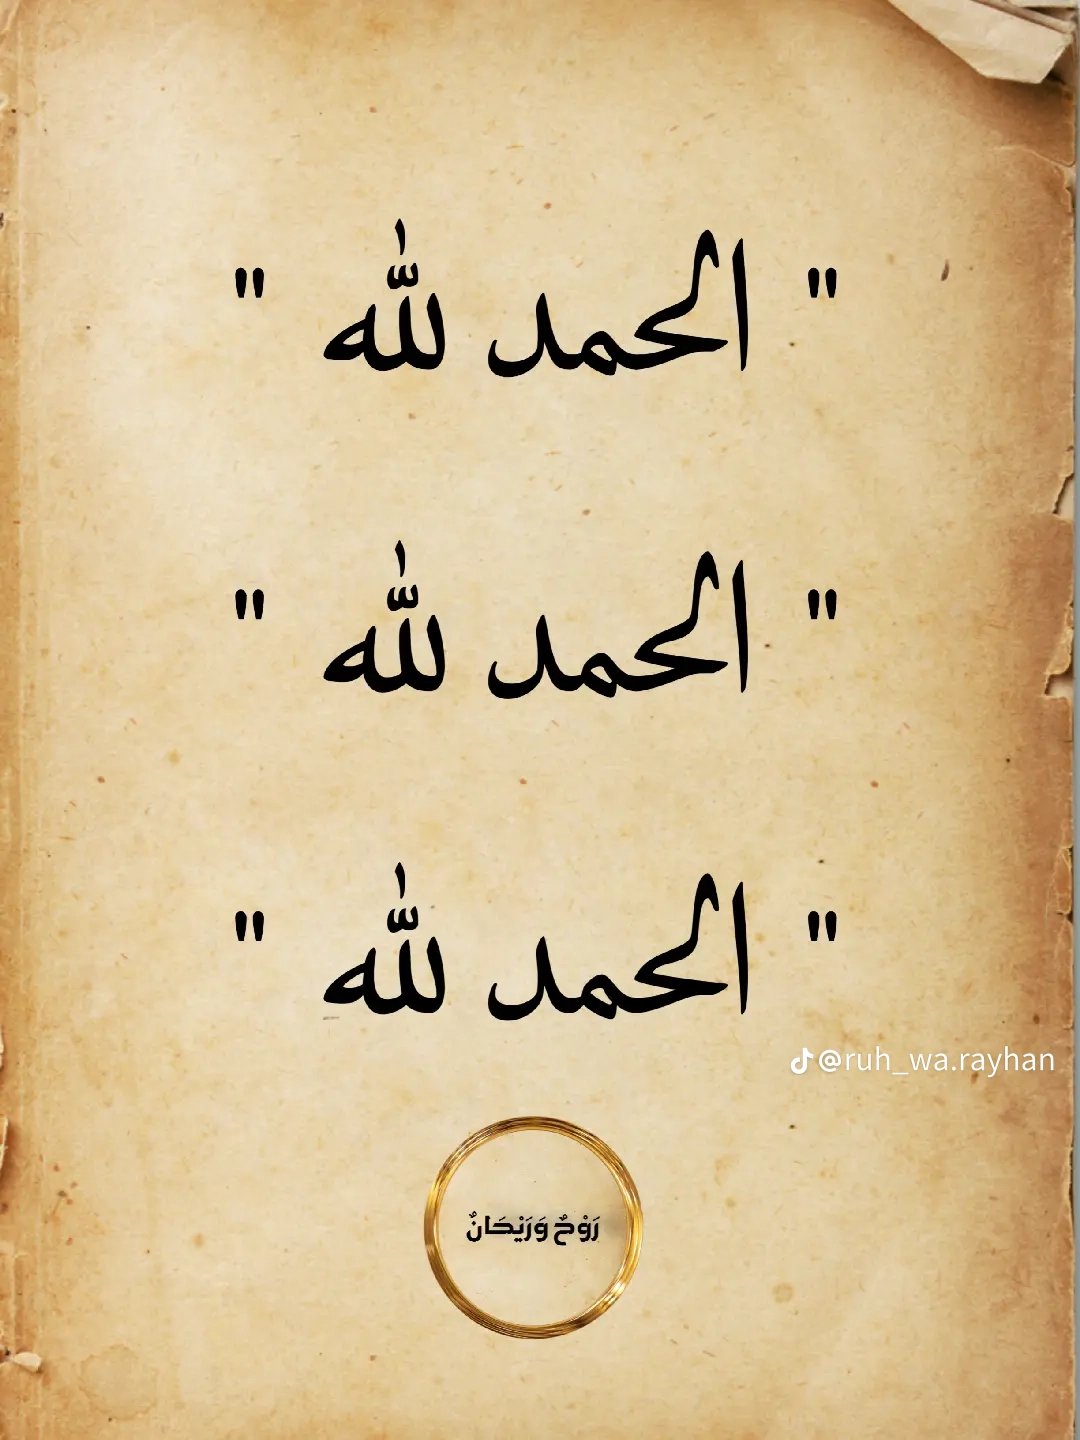 " الحمد لله "
" الحمد لله "
" الحمد لله "
@ruh_wa.rayhan
رَوْحٌ وَرَيْحَانٌ